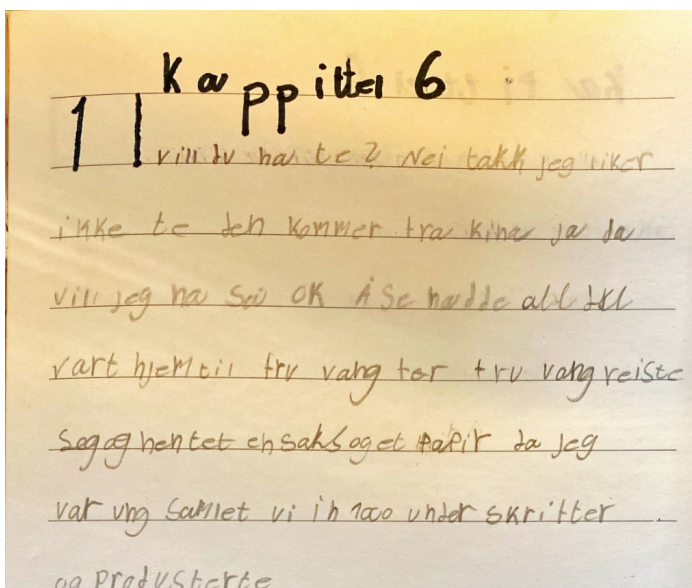 Kappitel 6
11 vill du ha te? Nei takk jeg liker
ikke te den kommer fra kina ja da
vill jeg ha sa OK Åse hadde all
vart hjem til fru vang for fru vang reiste
seg og hentet en saks og et papir da jeg
var ung samlet vi in 1000 under skrifter
og produserte